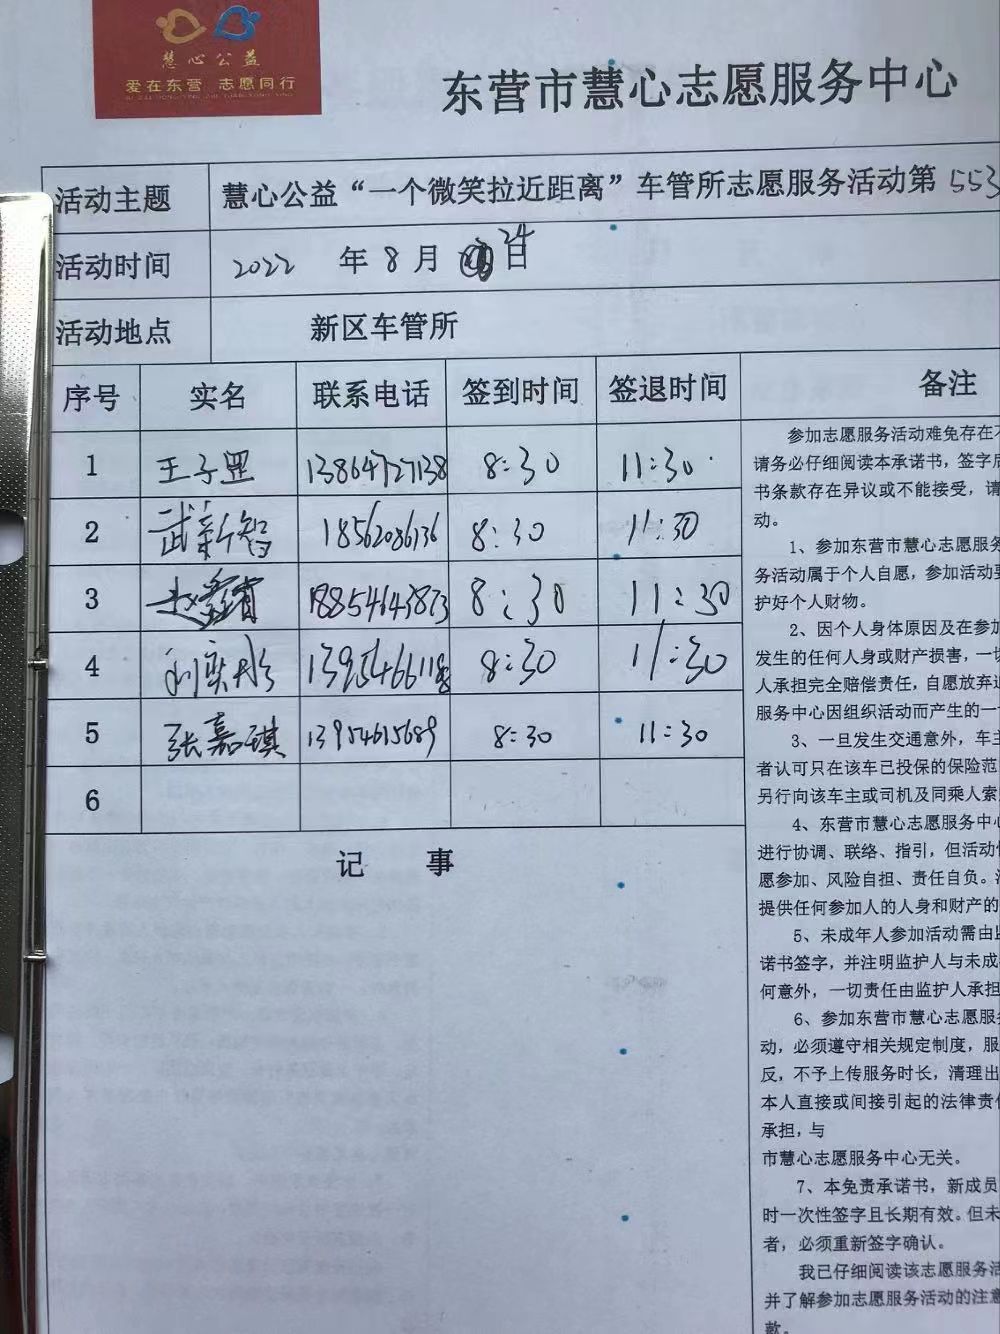 慧心公益
爱在东营 志愿同行
东营市慧心志愿服务中心
活动主题 慧心公益“一个微笑拉近距离”车管所志愿服务活动第553
活动时间 2022 年 8 月 24 日
活动地点 新区车管所
序号 实名 联系电话 签到时间 签退时间 备注
1 王子罡 13864727138 8:30 11:30
2 武新智 18562086136 8:30 11:30
3 18854643873 8:30 11:30
4 8:30 11:30
5 张嘉琪 13954615689 8:30 11:30
6
记 事
参加志愿服务活动难免存在不
请务必仔细阅读本承诺书，签字后
书条款存在异议或不能接受，请
动。
1、参加东营市慧心志愿服务
务活动属于个人自愿，参加活动要
护好个人财物。
2、因个人身体原因及在参加
发生的任何人身或财产损害，一切
人承担完全赔偿责任，自愿放弃追
服务中心因组织活动而产生的一
3、一旦发生交通意外，车主
者认可只在该车已投保的保险范
另行向该车主或司机及同乘人索
4、东营市慧心志愿服务中心
进行协调、联络、指引，但活动
愿参加、风险自担、责任自负。
提供任何参加人的人身和财产的
5、未成年人参加活动需由监
诺书签字，并注明监护人与未成
何意外，一切责任由监护人承担
6、参加东营市慧心志愿服务
动，必须遵守相关规定制度，服
反，不予上传服务时长，清理出
本人直接或间接引起的法律责任
承担，与
市慧心志愿服务中心无关。
7、本免责承诺书，新成员
时一次性签字且长期有效。但未
者，必须重新签字确认。
我已仔细阅读该志愿服务活
并了解参加志愿服务活动的注意
款。